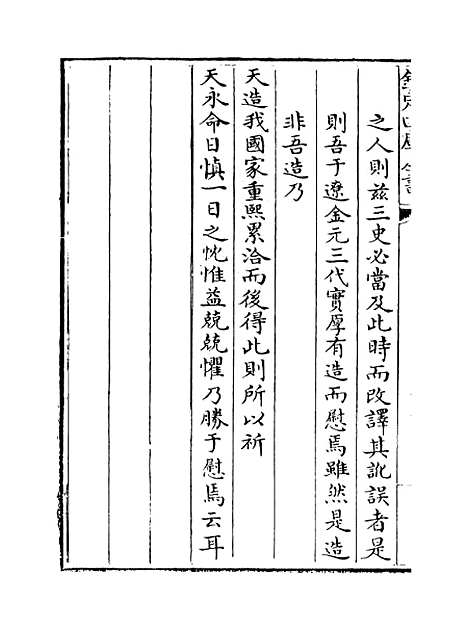 欽定四庫全書
之人則茲三史必當及此時而改譯其訛誤者是
則吾于遼金元三代實厚有造而慰焉雖然是造
非吾造乃
天造我國家重熙累洽而後得此則所以祈
天永命日慎一日之忱惟益兢兢懼乃勝于慰焉云耳